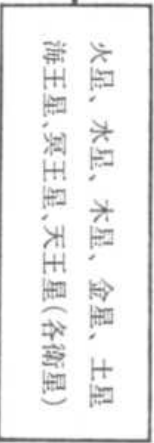 火星、水星、木星、金星、土星
海王星、冥王星、天王星(各衛星)